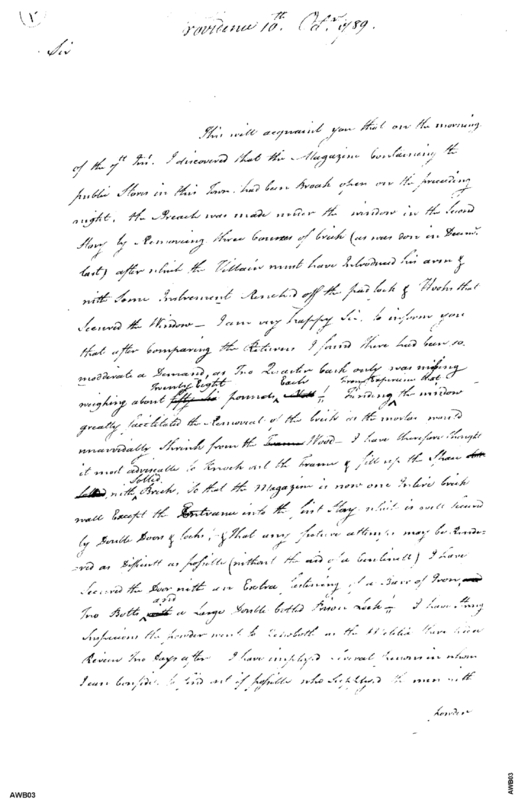 (1)
Providence 10th. Octr. 1789.
Sir
This will acquaint you that on the morning
of the 7th Inst. I discovered that the Magazine Containing the
public Stores in this Town had been Broak open on the preceeding
night. the Breach was made under the window in the Second
Story by Removing three Courses of brick (as was don in Decemr.
last) after which the Villain must have Introduced his arm &
with Some Instrument Renched off the pad lock & Hooks that
Secured the Window — I am very happy Sir, to inform you
that after Comparing the Returns I found there had been so
modderate a Demand, as Two Quarter Cask only was missing
weighing about Twenty Eight pounds Each !! Finding from Experience that the window
greatly facilitated the Removal of the bricks as the mortar would
unavoidably Shrink from the Wood — I have therefore thought
it most adviseable to Knock out the Frame & fill up the Space
with Sollid Brick, So that the Magazine is now one Intire brick
wall Except the Entrance into the first Story which is well Secured
by Double Doors & locks; & that any future attempt may be Rende-
red as Difficult as possible (without the aid of a Centinell) I have
Secured the Door with an Extra fastening of a Barr of Iron,
Two Bolts and a Large Double bolted Prison Lock !! I have Strong
Suspicions the powder went to Rehoboth as the Militia there were
Review'd Two days after I have employed several persons in whom
I can Confide to find out if possible who Supplyed the men with
powder
AWB03
AWB03